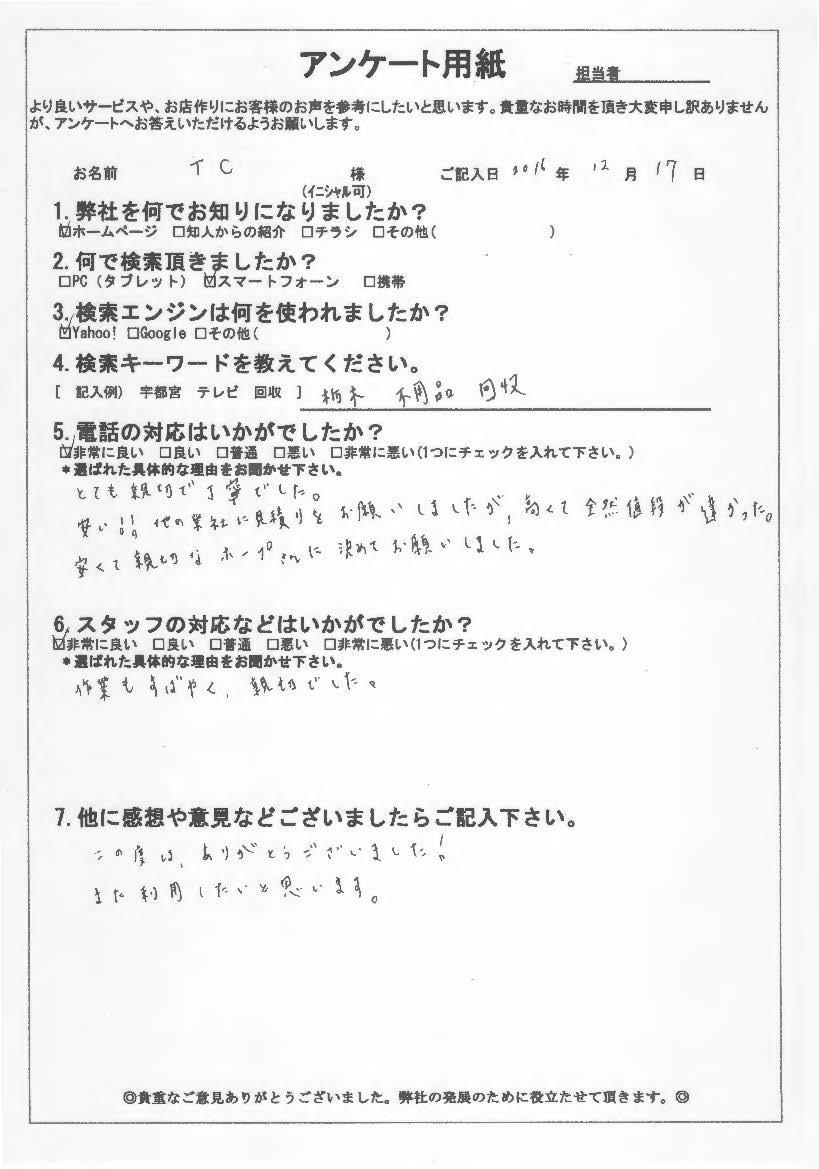 アンケート用紙
担当者
より良いサービスや、お店作りにお客様のお声を参考にしたいと思います。貴重なお時間を頂き大変申し訳ありません
が、アンケートへお答えいただけるようお願いします。
お名前 T C 様 ご記入日 2016 年 12 月 17 日
(イニシャル可)
1. 弊社を何でお知りになりましたか？
☑ホームページ □知人からの紹介 □チラシ □その他( )
2. 何で検索頂きましたか？
□PC（タブレット） ☑スマートフォーン □携帯
3. 検索エンジンは何を使われましたか？
☑Yahoo! □Google □その他( )
4. 検索キーワードを教えてください。
[ 記入例） 宇都宮 テレビ 回収 ] 栃木 不用品 回収
5. 電話の対応はいかがでしたか？
☑非常に良い □良い □普通 □悪い □非常に悪い(1つにチェックを入れて下さい。)
＊選ばれた具体的な理由をお聞かせ下さい。
とても親切で丁寧でした。
安い!! 他の業社に見積りをお願いしましたが, 高くて全然値段が違かった。
安くて親切なホープさんに決めてお願いしました。
6. スタッフの対応などはいかがでしたか？
☑非常に良い □良い □普通 □悪い □非常に悪い(1つにチェックを入れて下さい。)
＊選ばれた具体的な理由をお聞かせ下さい。
作業もすばやく, 親切でした。
7. 他に感想や意見などございましたらご記入下さい。
この度は, ありがとうございました!
また利用したいと思います。
◎貴重なご意見ありがとうございました。弊社の発展のために役立たせて頂きます。◎